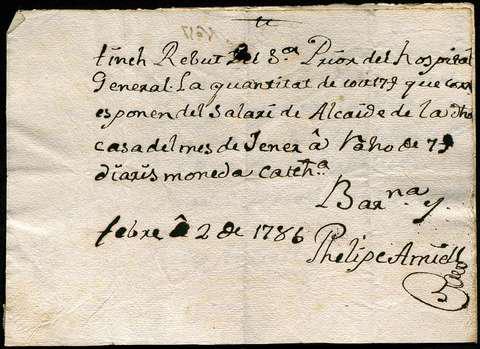 tinch Rebut del S.r Prior del hospital
General. La quantitat de que
esponen del Salari de Alcaide de la dha
casa del mes de Jener â Raho de 7
diaris moneda Catha.
Barna y
febre â 2 de 1786
Phelipe Amiell